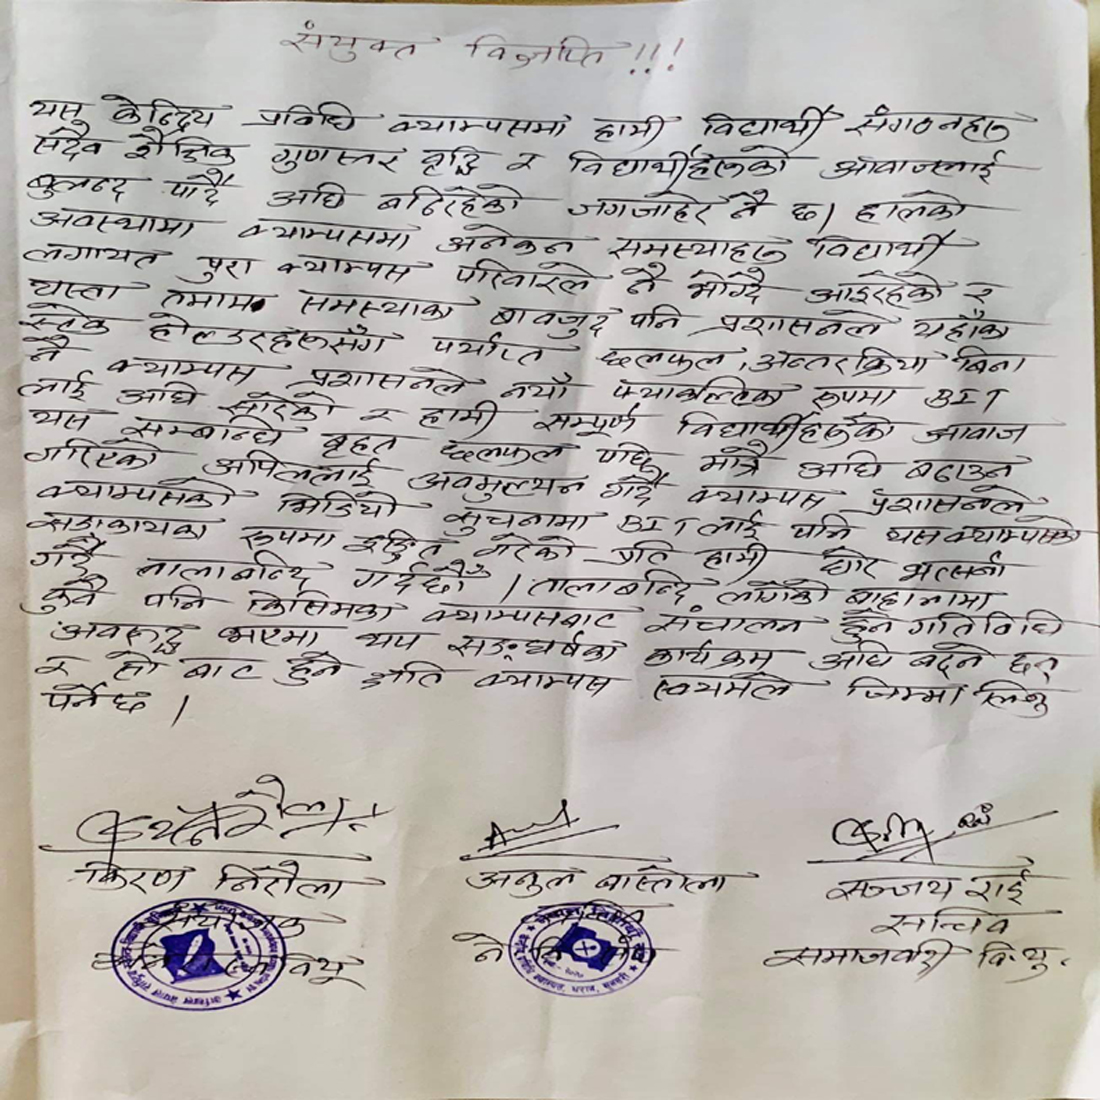 संयुक्त विज्ञप्ति !!!
यस केन्द्रिय प्रविधि क्याम्पसमा हामी विद्यार्थी संगठनहरु
सदैव शैक्षिक गुणस्तर वृद्धि र विद्यार्थीहरुको आवाजलाई
बुलन्द पार्दै अघि बढिरहेको जगजाहेर नै छ। हालको
अवस्थामा क्याम्पसमा अनेकन समस्याहरु विद्यार्थी
लगायत पुरा क्याम्पस परिवारले नै भोग्दै आइरहेको र
यस्ता तमाम समस्याका बावजुद पनि प्रशासनले यहाँका
स्तेक होल्डरहरुसँग पर्याप्त छलफल, अन्तरक्रिया बिना
नै क्याम्पस प्रशासनले नयाँ फ्याकल्टिका रूपमा BIT
लाई अघि सारेको र हामी सम्पूर्ण विद्यार्थीहरुको आवाज
यस सम्बन्धि बृहत छलफल पछि मात्रै अघि बढाउन
गरिएको अपिललाई अवमुल्यन गर्दै क्याम्पस प्रशासनले
क्याम्पसको भिडियो सुचनामा BIT लाई पनि यस क्याम्पसको
सङकायका रूपमा इङ्गित गरेको प्रति हामी घोर भर्त्सना
गर्दै तालाबन्दि गर्दछौँ । तालाबन्दि लगेको बाहानामा
कुनै पनि किसिमका क्याम्पसबाट संचालन हुने गतिविधि
अवरूद्ध भएमा थप सङ्घर्षका कार्यक्रम अघि बढ्ने छन्
र सो बाट हुने क्षति क्याम्पस स्वयमले जिम्मा लिनु
पर्नेछ ।
किरण निरौला
अतुल बास्तोला
सञ्जय राई
सचिव
समाजवादी वि.यु.